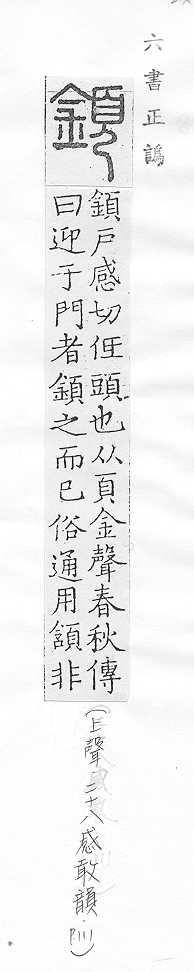 六書正譌
顉
顉戶感切低頭也从頁金聲春秋傳
曰迎于門者顉之而已俗通用頷非
(上聲二十八感敢韻·